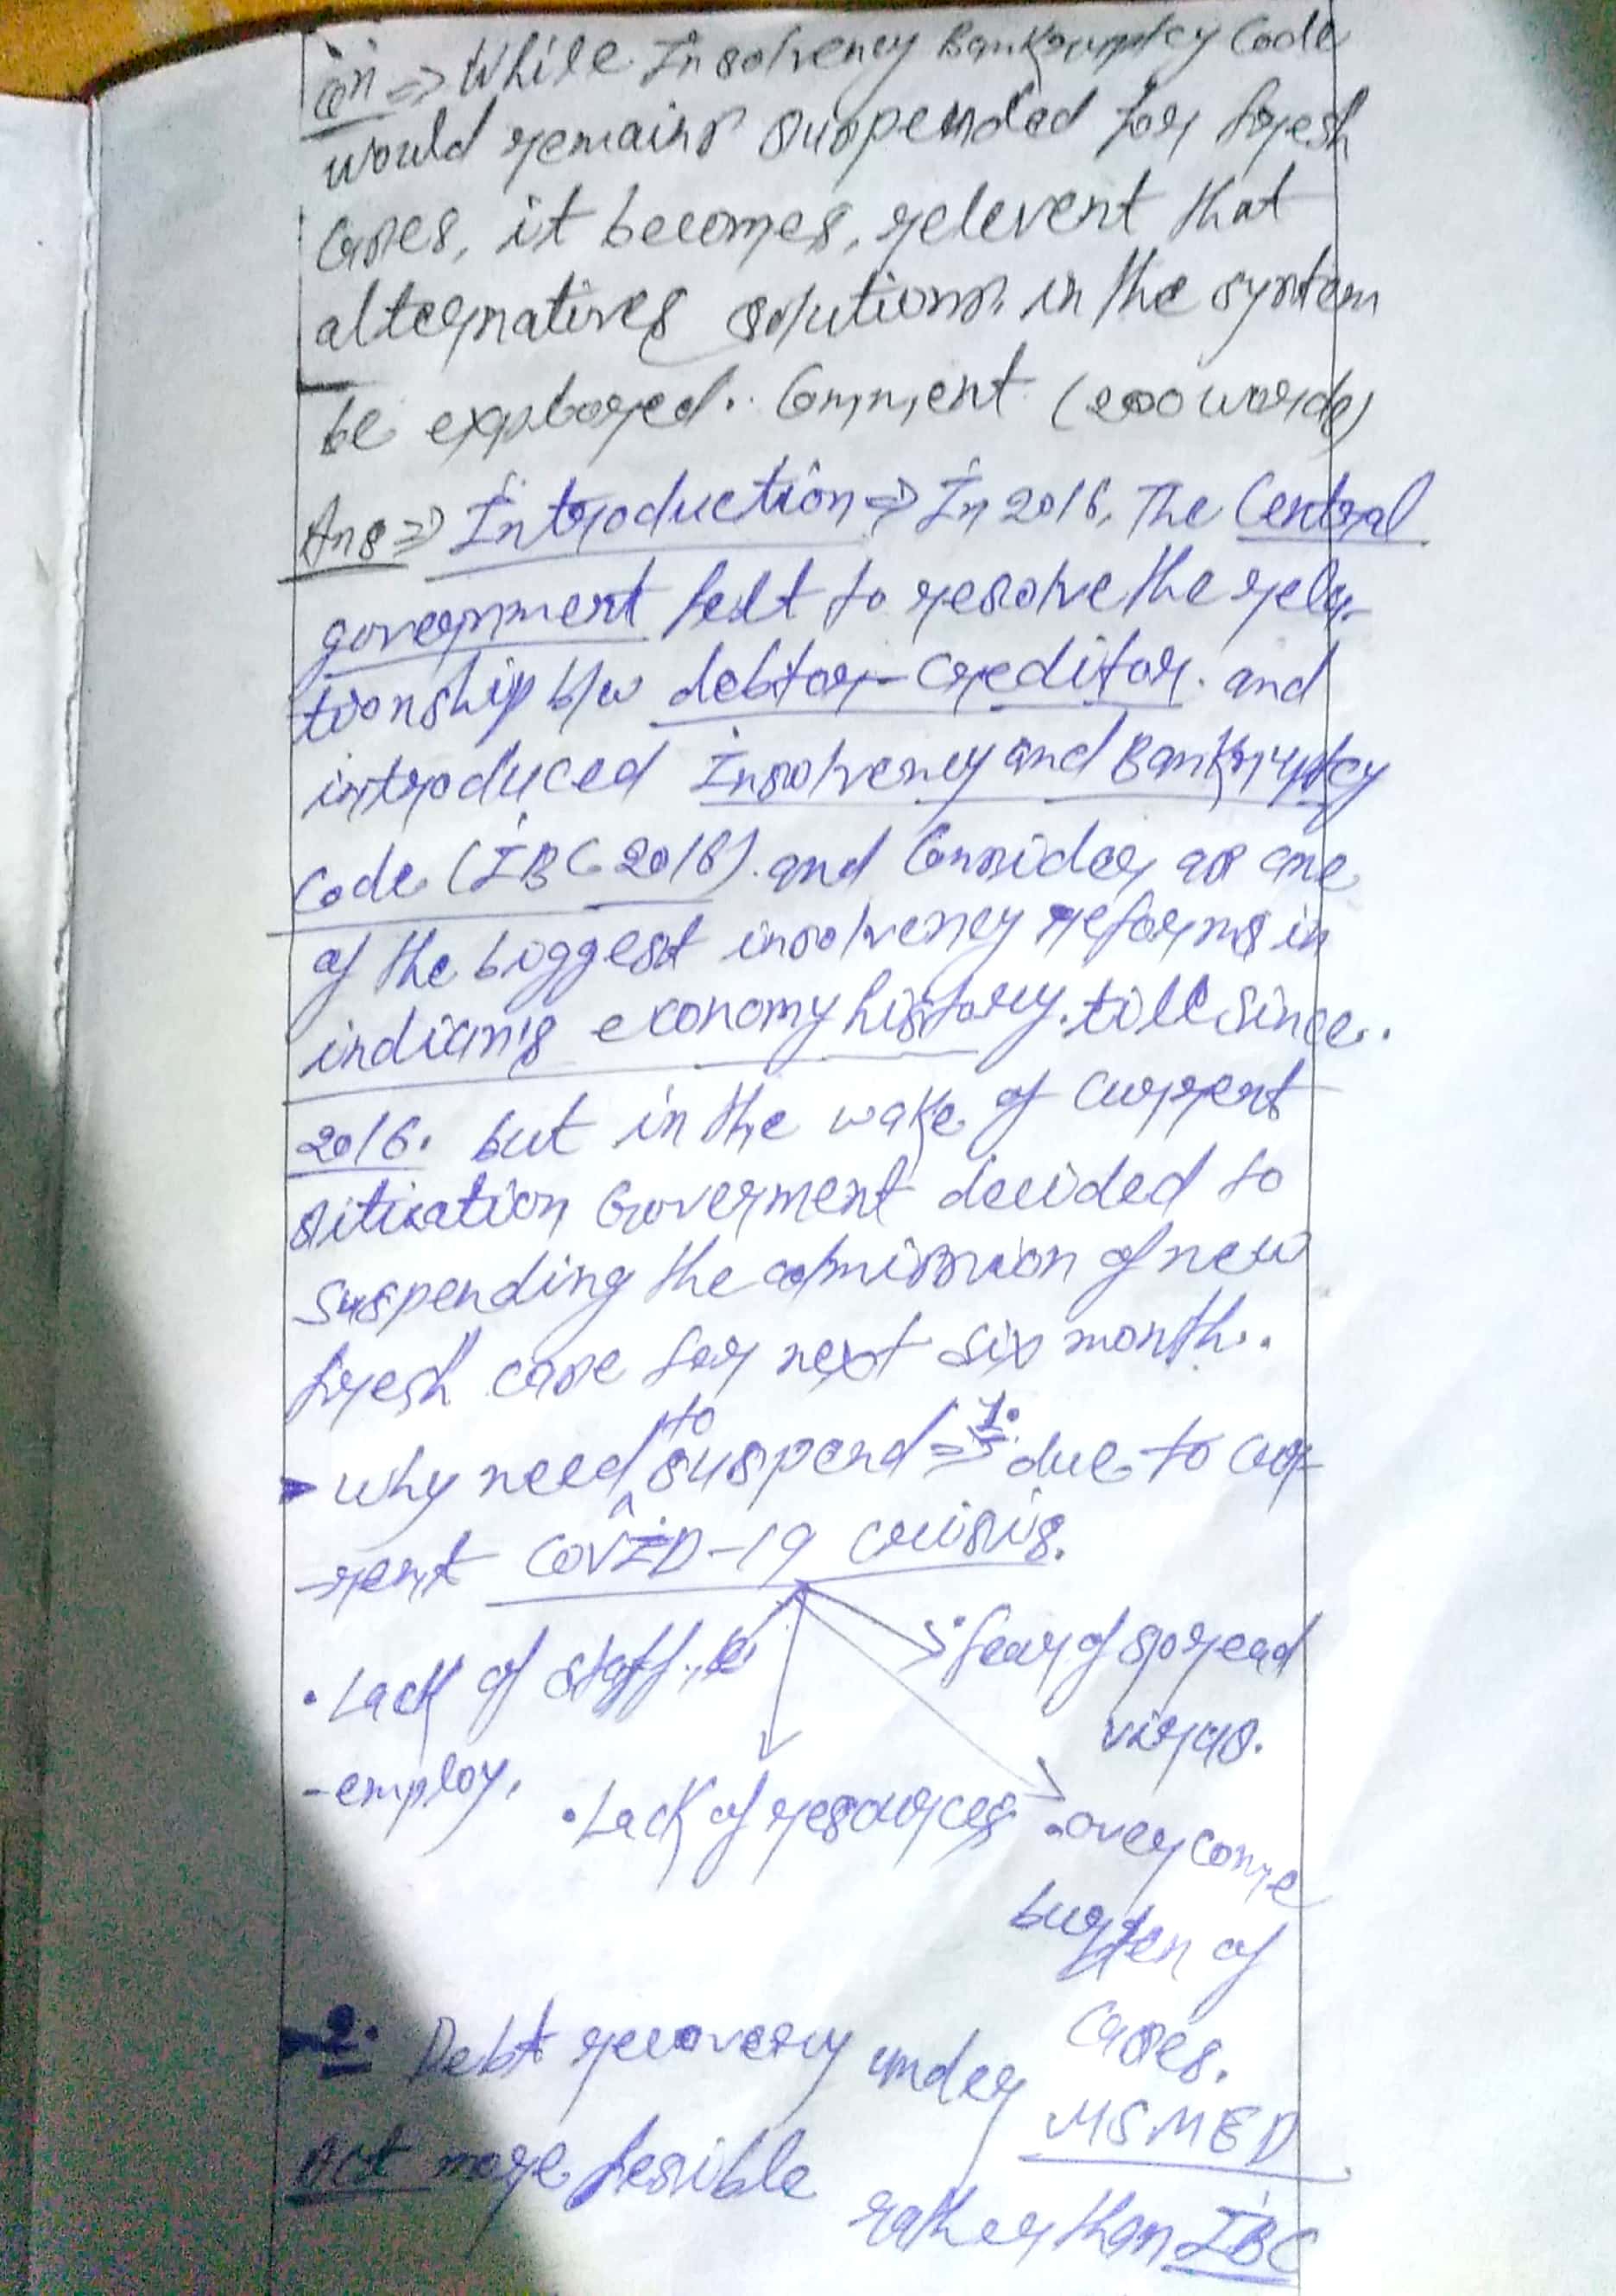 Qn => While Insolvency Bankrumptcy Code
would remains suspended for fresh
Cases, it becomes, relevent that
alternatives solutions in the system
be explored. Comment (200 words)
Ans => Introduction => In 2016, The Central
government felt to resolve the rela-
tionship b/w debtor-creditor. and
introduced Insolvency and Bankruptcy
Code (IBC 2016). and Consider as one
of the biggest insolvency reforms in
indian's economy history. till since.
2016. but in the wake of current
sitiuation Goverment decided to
suspending the admission of new
fresh case for next six month.
why need to suspend => 1. due to cur
-rent COVID-19 crisis.
• Lack of staff,
-employ.
• Lack of resources
• fear of spread
virus.
• overcome
burden of
cases.
2. Debt recovery under MSMED
Act more fesible rather than IBC